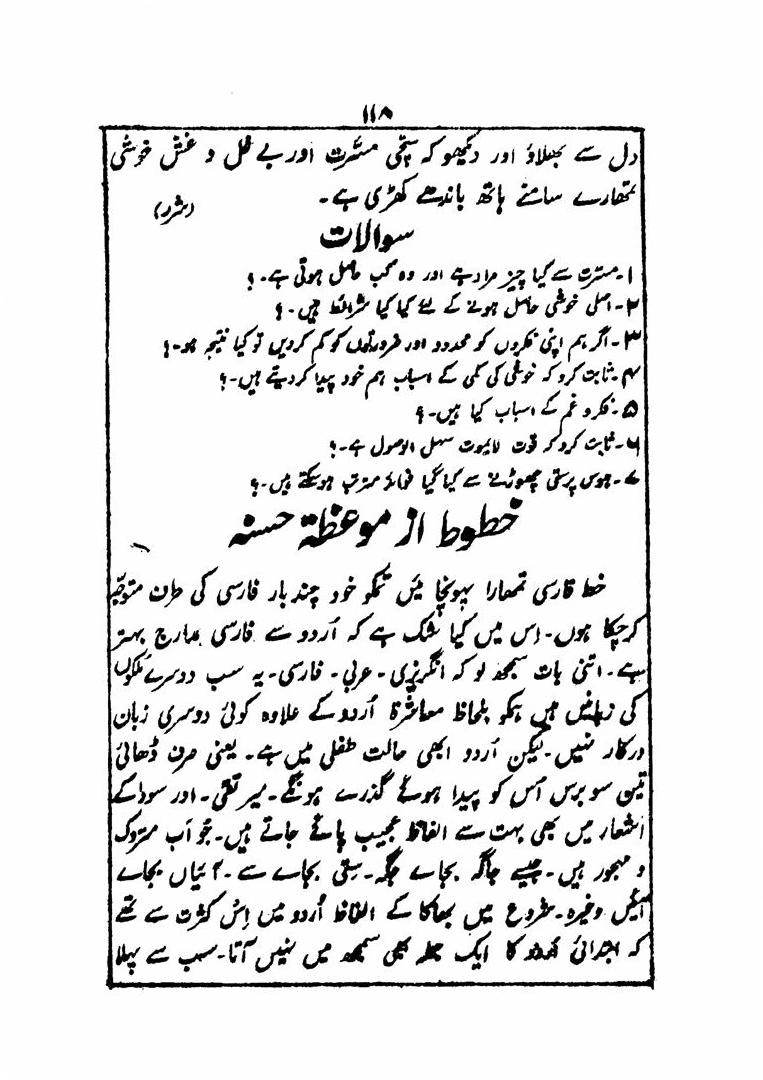 ۱۱۸
دل سے بھلاؤ اور دیکھو کہ سچی مسرّت اور بے غل و غش خوشی
تمھارے سامنے ہاتھ باندھے کھڑی ہے۔
(شرر)
سوالات
۱۔ مسرّت سے کیا چیز مراد ہے اور وہ کب حاصل ہوتی ہے۔؟
۲۔ اصلی خوشی حاصل ہونے کے لئے کیا کیا شرائط ہیں۔؟
۳۔ اگر ہم اپنی فکروں کو محدود اور ضرورتوں کو کم کردیں تو کیا نتیجہ ہو۔؟
۴۔ ثابت کرو کہ خوشی کی کمی کے اسباب ہم خود پیدا کردیتے ہیں۔؟
۵۔ فکر و غم کے اسباب کیا ہیں۔؟
۶۔ ثابت کرو کہ قوت لایموت سہل الوصول ہے۔؟
۷۔ ہوس پرستی چھوڑنے سے کیا کیا فوائد مرتب ہوسکتے ہیں۔؟
خطوط از موعظۃ حسنہ
خط فارسی تمھارا پہونچا میں تمکو خود چند بار فارسی کی طرف متوجّہ
کرچکا ہوں۔ اس میں کیا شک ہے کہ اُردو سے فارسی بدارج بہتر
ہے۔ اتنی بات سمجھ لو کہ انگریزی۔ عربی۔ فارسی۔ یہ سب دوسرے ملکوں
کی زبانیں ہیں ہمکو بلحاظ معاشرۃ اُردو کے علاوہ کوئی دوسری زبان
درکار نہیں۔ لیکن اُردو ابھی حالت طفلی میں ہے۔ یعنی صرف ڈھائی
تین سو برس اس کو پیدا ہوئے گذرے ہونگے۔ میر تقی۔ اور سودا کے
اشعار میں بھی بہت سے الفاظ عجیب پائے جاتے ہیں۔ جو اب متروک
و مہجور ہیں۔ جیسے جاگہ بجاے جگہ۔ ستی بجاے سے۔ آئیاں بجاے
آئیں وغیرہ۔ شروع میں بھاکا کے الفاظ اُردو میں اِس کثرت سے تھے
کہ ابتدائی اُردو کا ایک جملہ بھی سمجھ میں نہیں آتا۔ سب سے پہلا